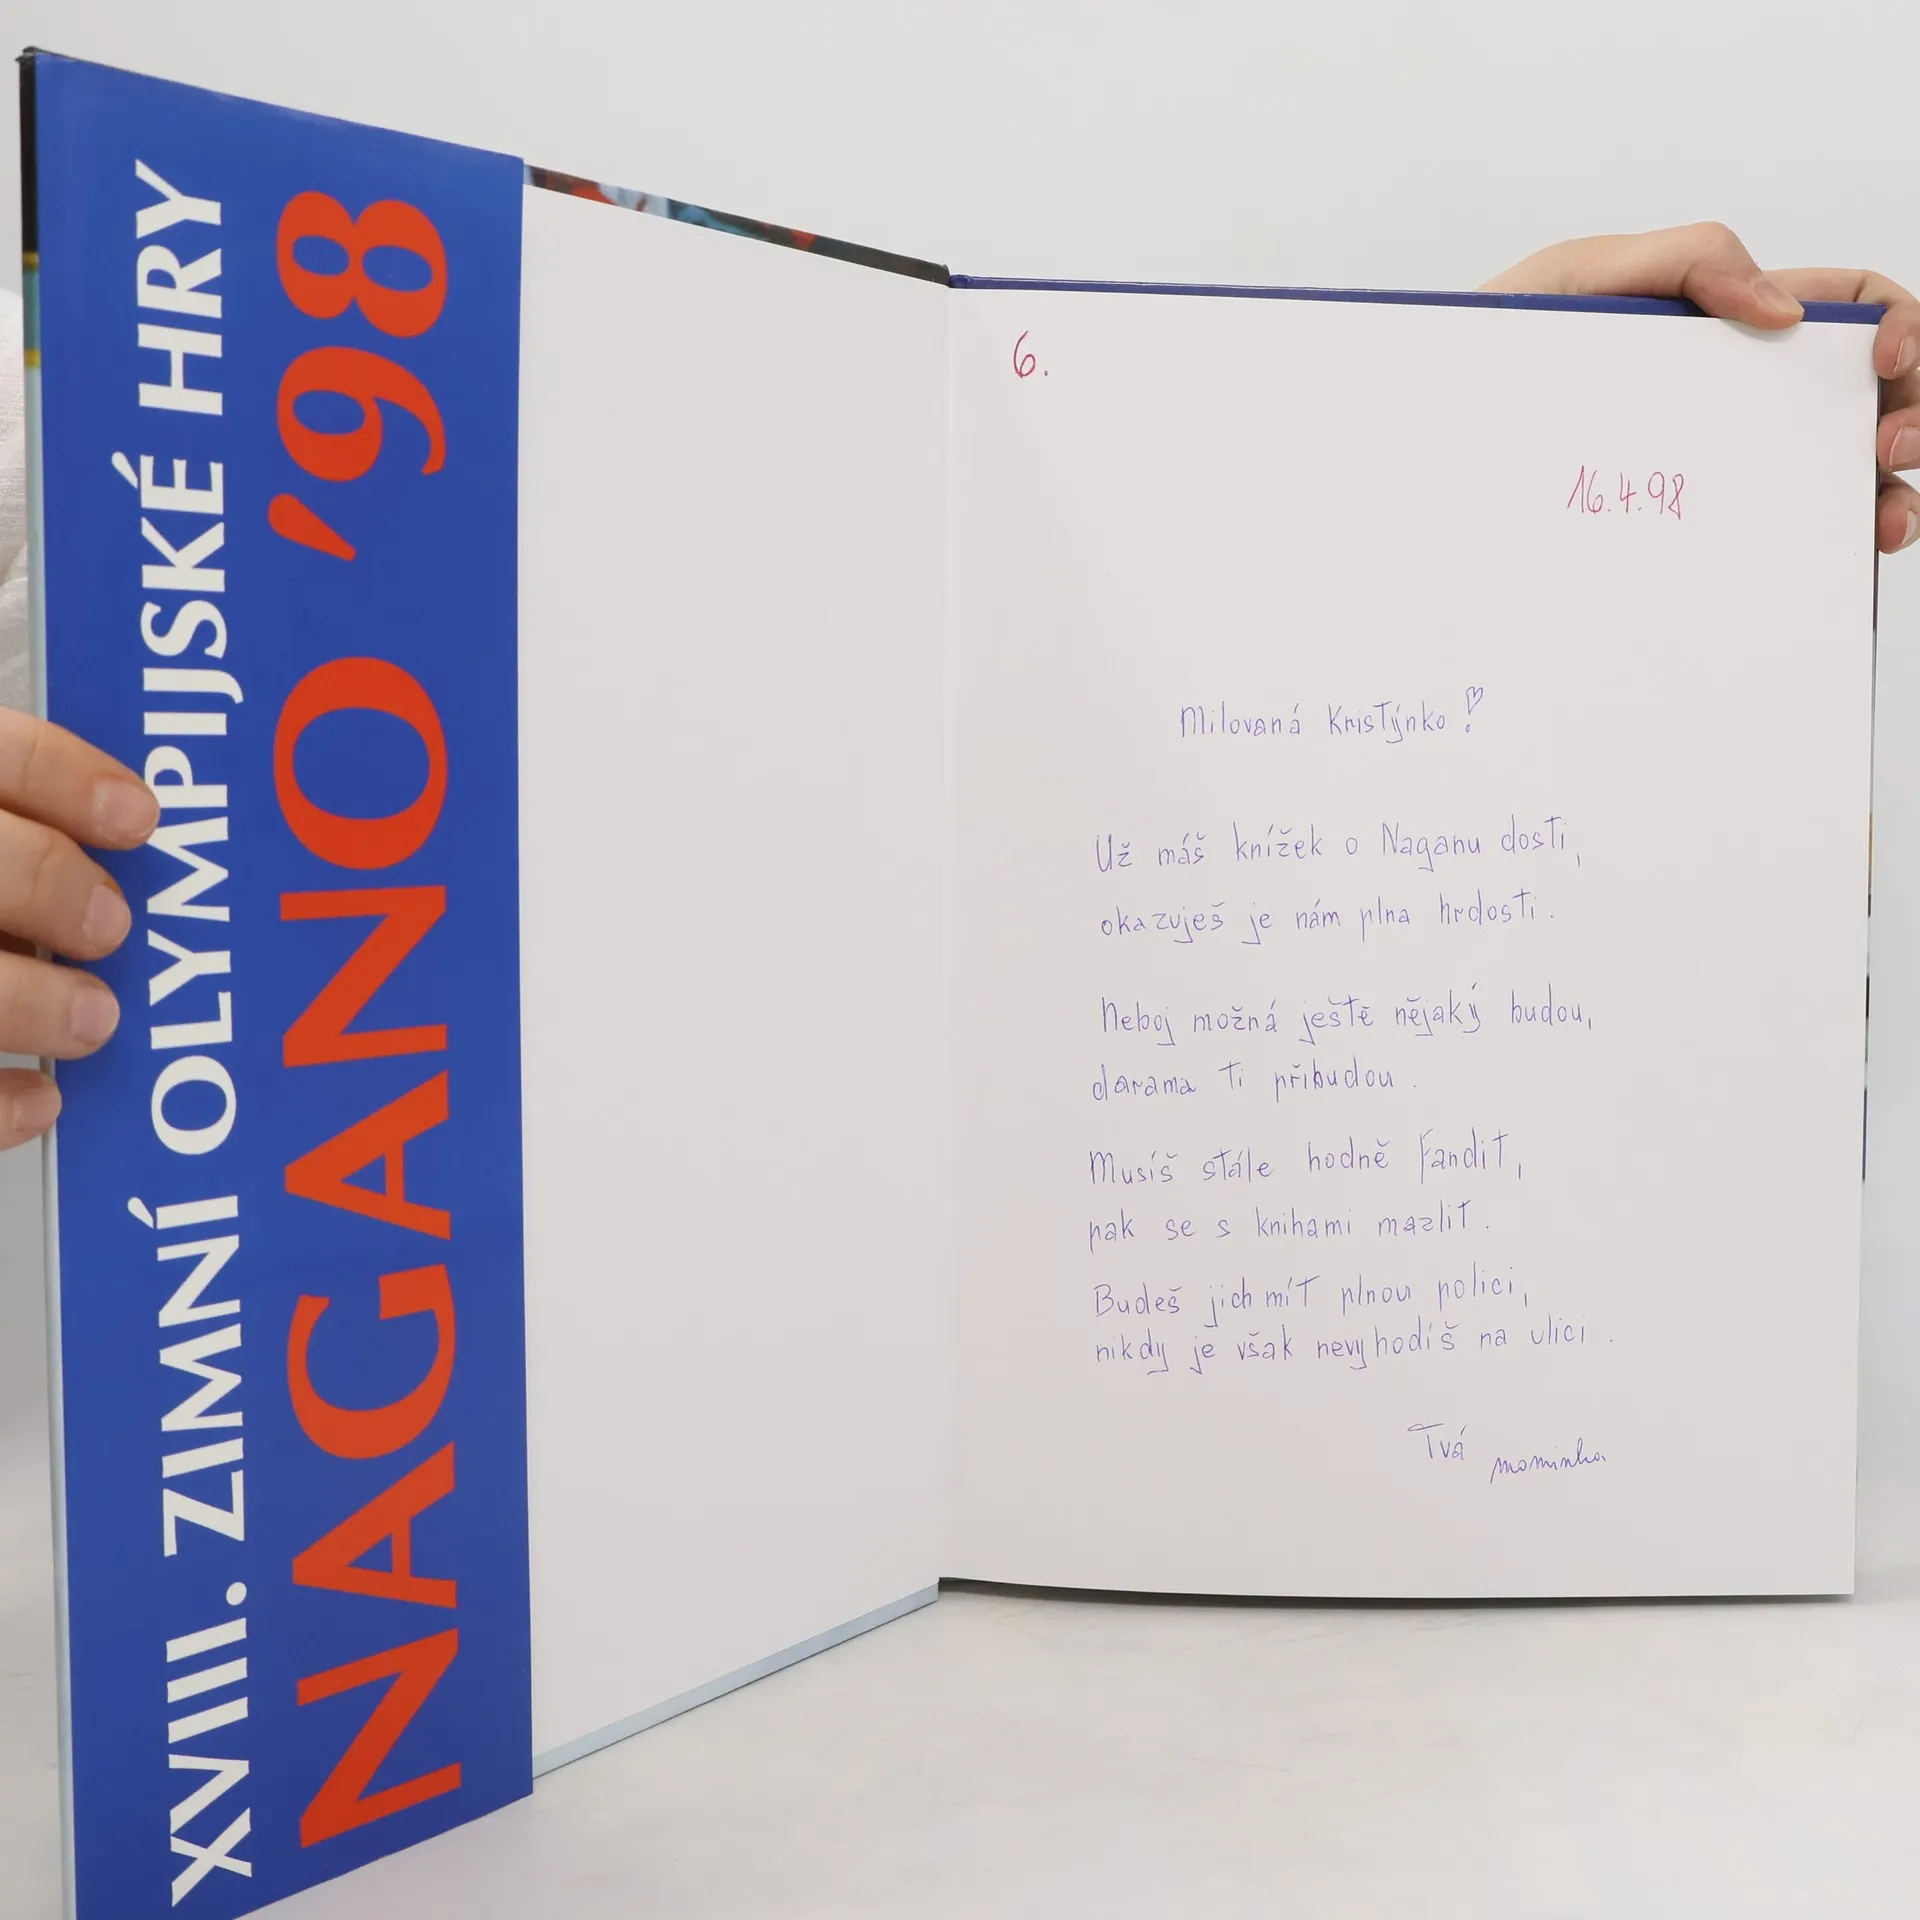 XVIII. ZIMNÍ OLYMPIJSKÉ HRY
NAGANO '98
6.
16.4.98
Milovaná Kristýnko!
Už máš knížek o Naganu dosti,
okazuješ je nám plna hrdosti.
Neboj možná ještě nějaký budou,
darama ti přibudou.
Musíš stále hodně fandit,
pak se s knihami mazlit.
Budeš jich mít plnou polici,
nikdy je však nevyhodíš na ulici.
Tvá maminka